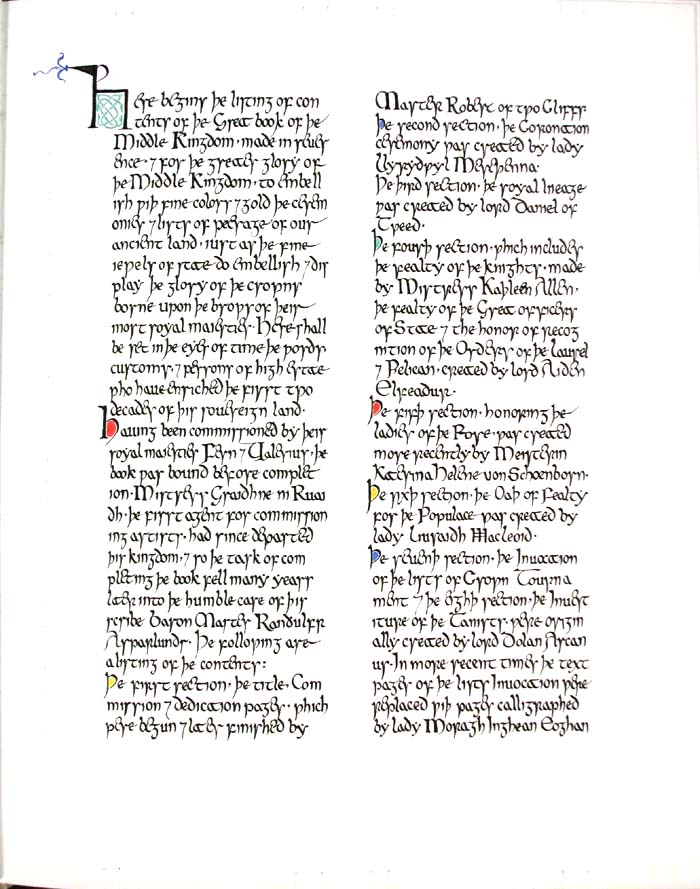 Here begins þe listing of con
tents of þe Great book of þe
Middle Kingdom · made in rever
ence · ⁊ for þe greater glory of
þe Middle Kingdom · to embell
ish ƿiþ fine colors ⁊ gold þe cerem
onies ⁊ lists of peerage of our
ancient land · iust as þe fine
ieƿels of state do embellish ⁊ dis
play þe glory of þe croƿns
borne upon þe broƿs of þeir
most royal maiesties · Here shall
be set in þe eyes of time þe ƿords ·
customs · ⁊ persons of high estate
ƿho have enriched þe first tƿo
decades of þis souereign land ·
Hauing been commissioned by þeir
royal maiesties Fern ⁊ Valerius · þe
book ƿas bound before complet
ion · Mistress Graidhne ni Ruai
dh · þe first agent for commission
ing artists · had since departed
þis kingdom · ⁊ so þe task of com
pleting þe book fell many years
later into þe humble care of þis
scribe Baron Master Randulfr
Asparlundr · Þe folloƿing are
a listing of þe contents:
Þe first section · þe title · Com
mission ⁊ dedication pages · ƿhich
ƿere begun ⁊ later finished by
Master Robert of tƿo Cliffs ·
Þe second section · þe Coronation
ceremony ƿas created by lady
Llyrydƿyl Merþenna
Þe þird section · þe royal lineage
ƿas created by lord Daniel of
Tƿeed ·
Þe fourþ section · ƿhich includes
þe fealty of þe knights · made
by Mistress Kaþleen Allen ·
þe fealty of þe Great officers
of State ⁊ the honor of recog
nition of þe Orders of þe laurel
⁊ Pelican · created by lord Aiden
Elfeadur ·
Þe fifþ section · honoring þe
ladies of þe Rose · ƿas created
more recently by Meisterin
Katerina Helene von Schoenborn ·
Þe sixþ section · þe Oaþ of Fealty
for þe Populace ƿas created by
lady Livraidh Macleoid ·
Þe seuenþ section · þe Inuocation
of þe lists of Croƿn Tourna
ment ⁊ þe eighþ section · þe Invest
iture of þe Tanists · ƿere origin
ally created by lord Dolan Arcan
us · In more recent times þe text
pages of þe lists Inuocation ƿere
replaced ƿiþ pages calligraphed
by lady Moragh Inghean Eoghan